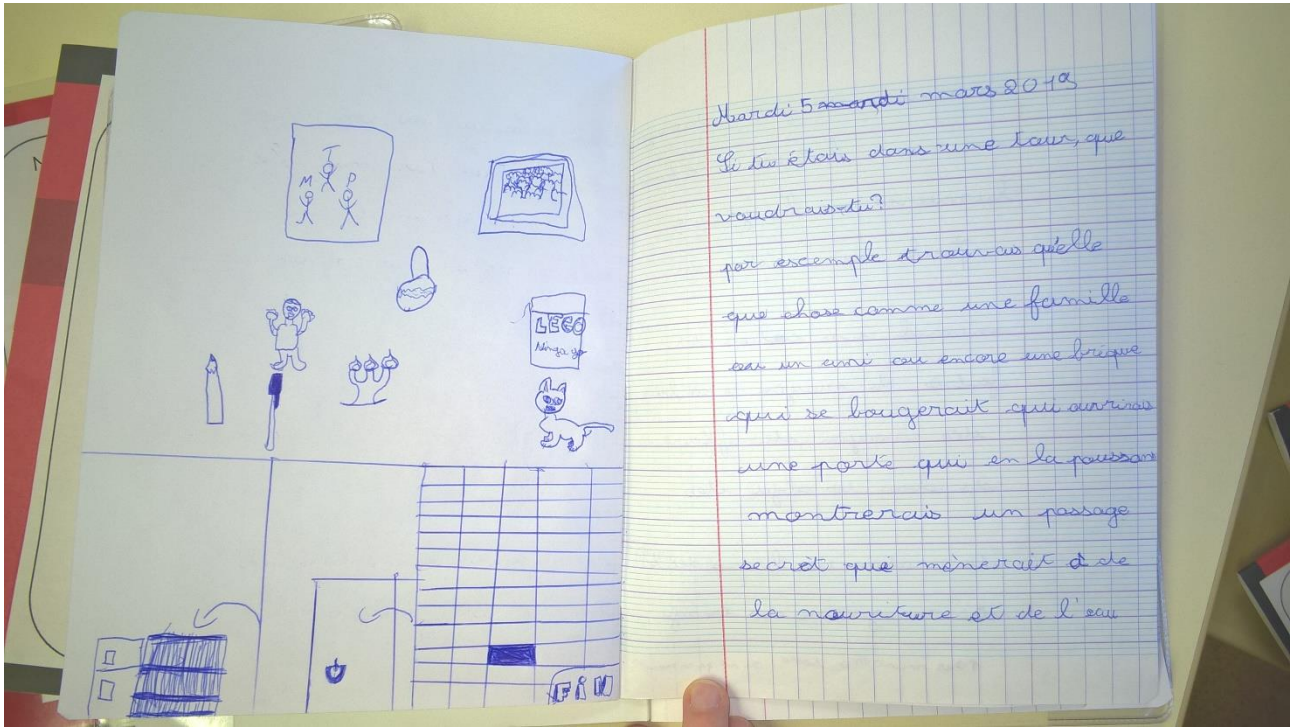 T
M P
LEGO
Ninga go
FIN
Mardi 5 mardi mars 2019
Si tu étais dans une tour, que
voudrais-tu?
par escemple trouvais qu'elle
que chose comme une famille
ou un ami ou encore une brique
qui se bougerait qui ouvrirais
une porte qui en la poussant
montrerais un passage
secrèt qui mènerait à de
la nouriture et de l'eau